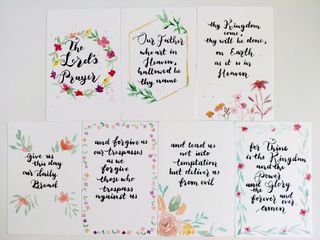 The
Lord's
Prayer
Our Father
who art in
Heaven,
hallowed be
thy name
thy Kingdom
come,
thy will be done,
on Earth
as it is in
Heaven.
Give us
this day
our daily
Bread
and forgive us
our trespasses
as we
forgive
those who
trespass
against us
and lead us
not into
temptation
but deliver us
from evil
for Thine
is the Kingdom
and the
Power
and Glory,
for
forever and
ever
amen